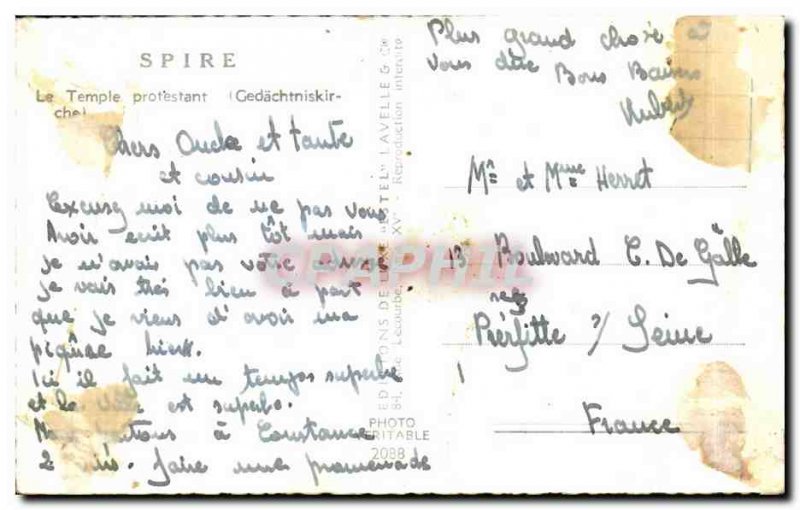 SPIRE
Le Temple protestant (Gedächtniskir-
che)
Chers Oncle et tante
et cousin
Excusez moi de ne pas vous
Avoir ecrit plus tôt mais
je n'avais pas votre
je vais très bien à part
que je viens d'avoir ma
piqûre hier.
Ici il fait un temps superbe
et la est superbe.
à Constance
2 faire une promenade
EDITIONS DE LUXE "ESTEL" LAVELLE & Cie
Lecourbe, XV° - Reproduction interdite
PHOTO
VERITABLE
2088
CARTAPHIL
Plus grand chose a
vous dire Bons Baisers
Hubert
Mr et Mme Herret
13 Boulward C. De Gälle
Pierfitte s/ Seine
France